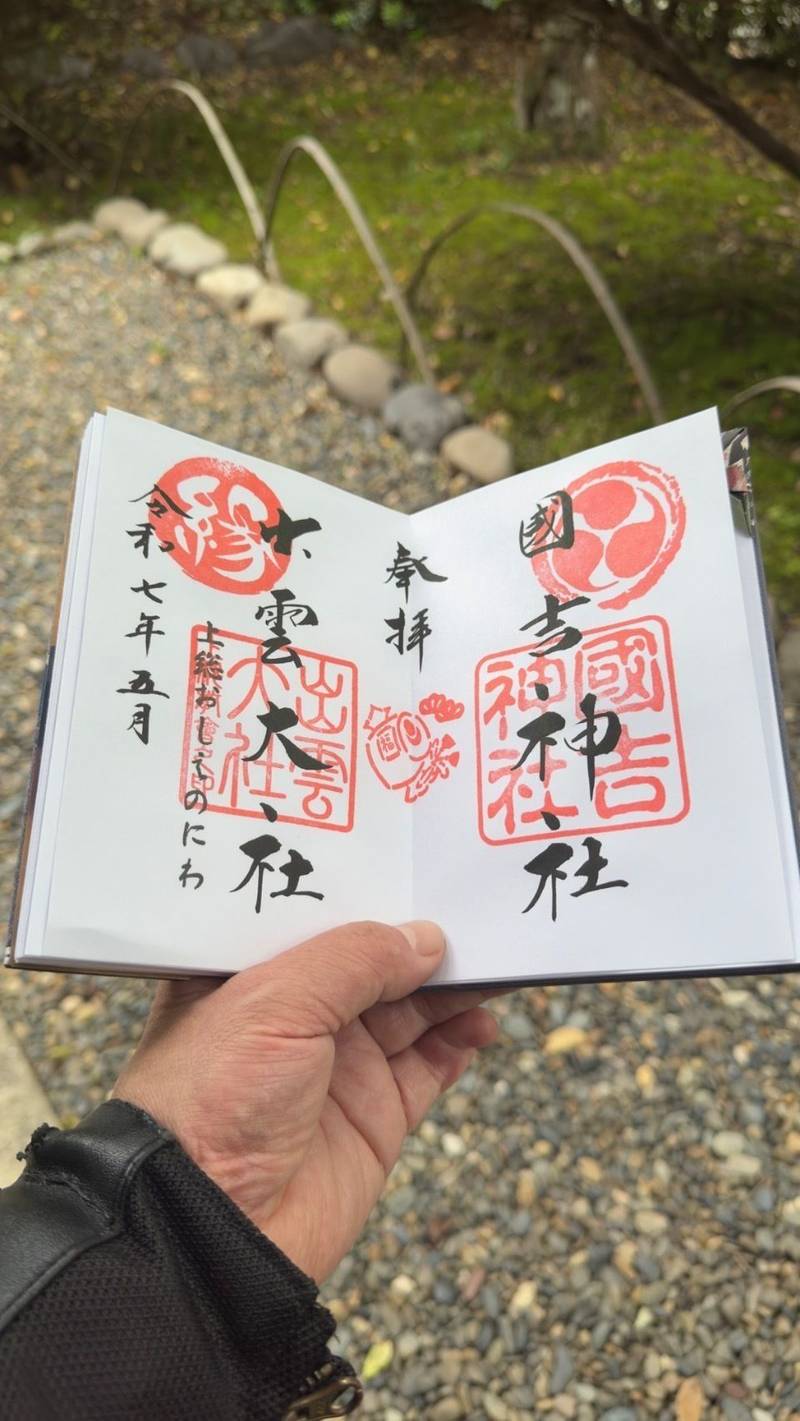 國吉神社
國吉
神社
奉拝
出雲大社
縁
出雲
大社
上総おしえのにわ
令和七年五月